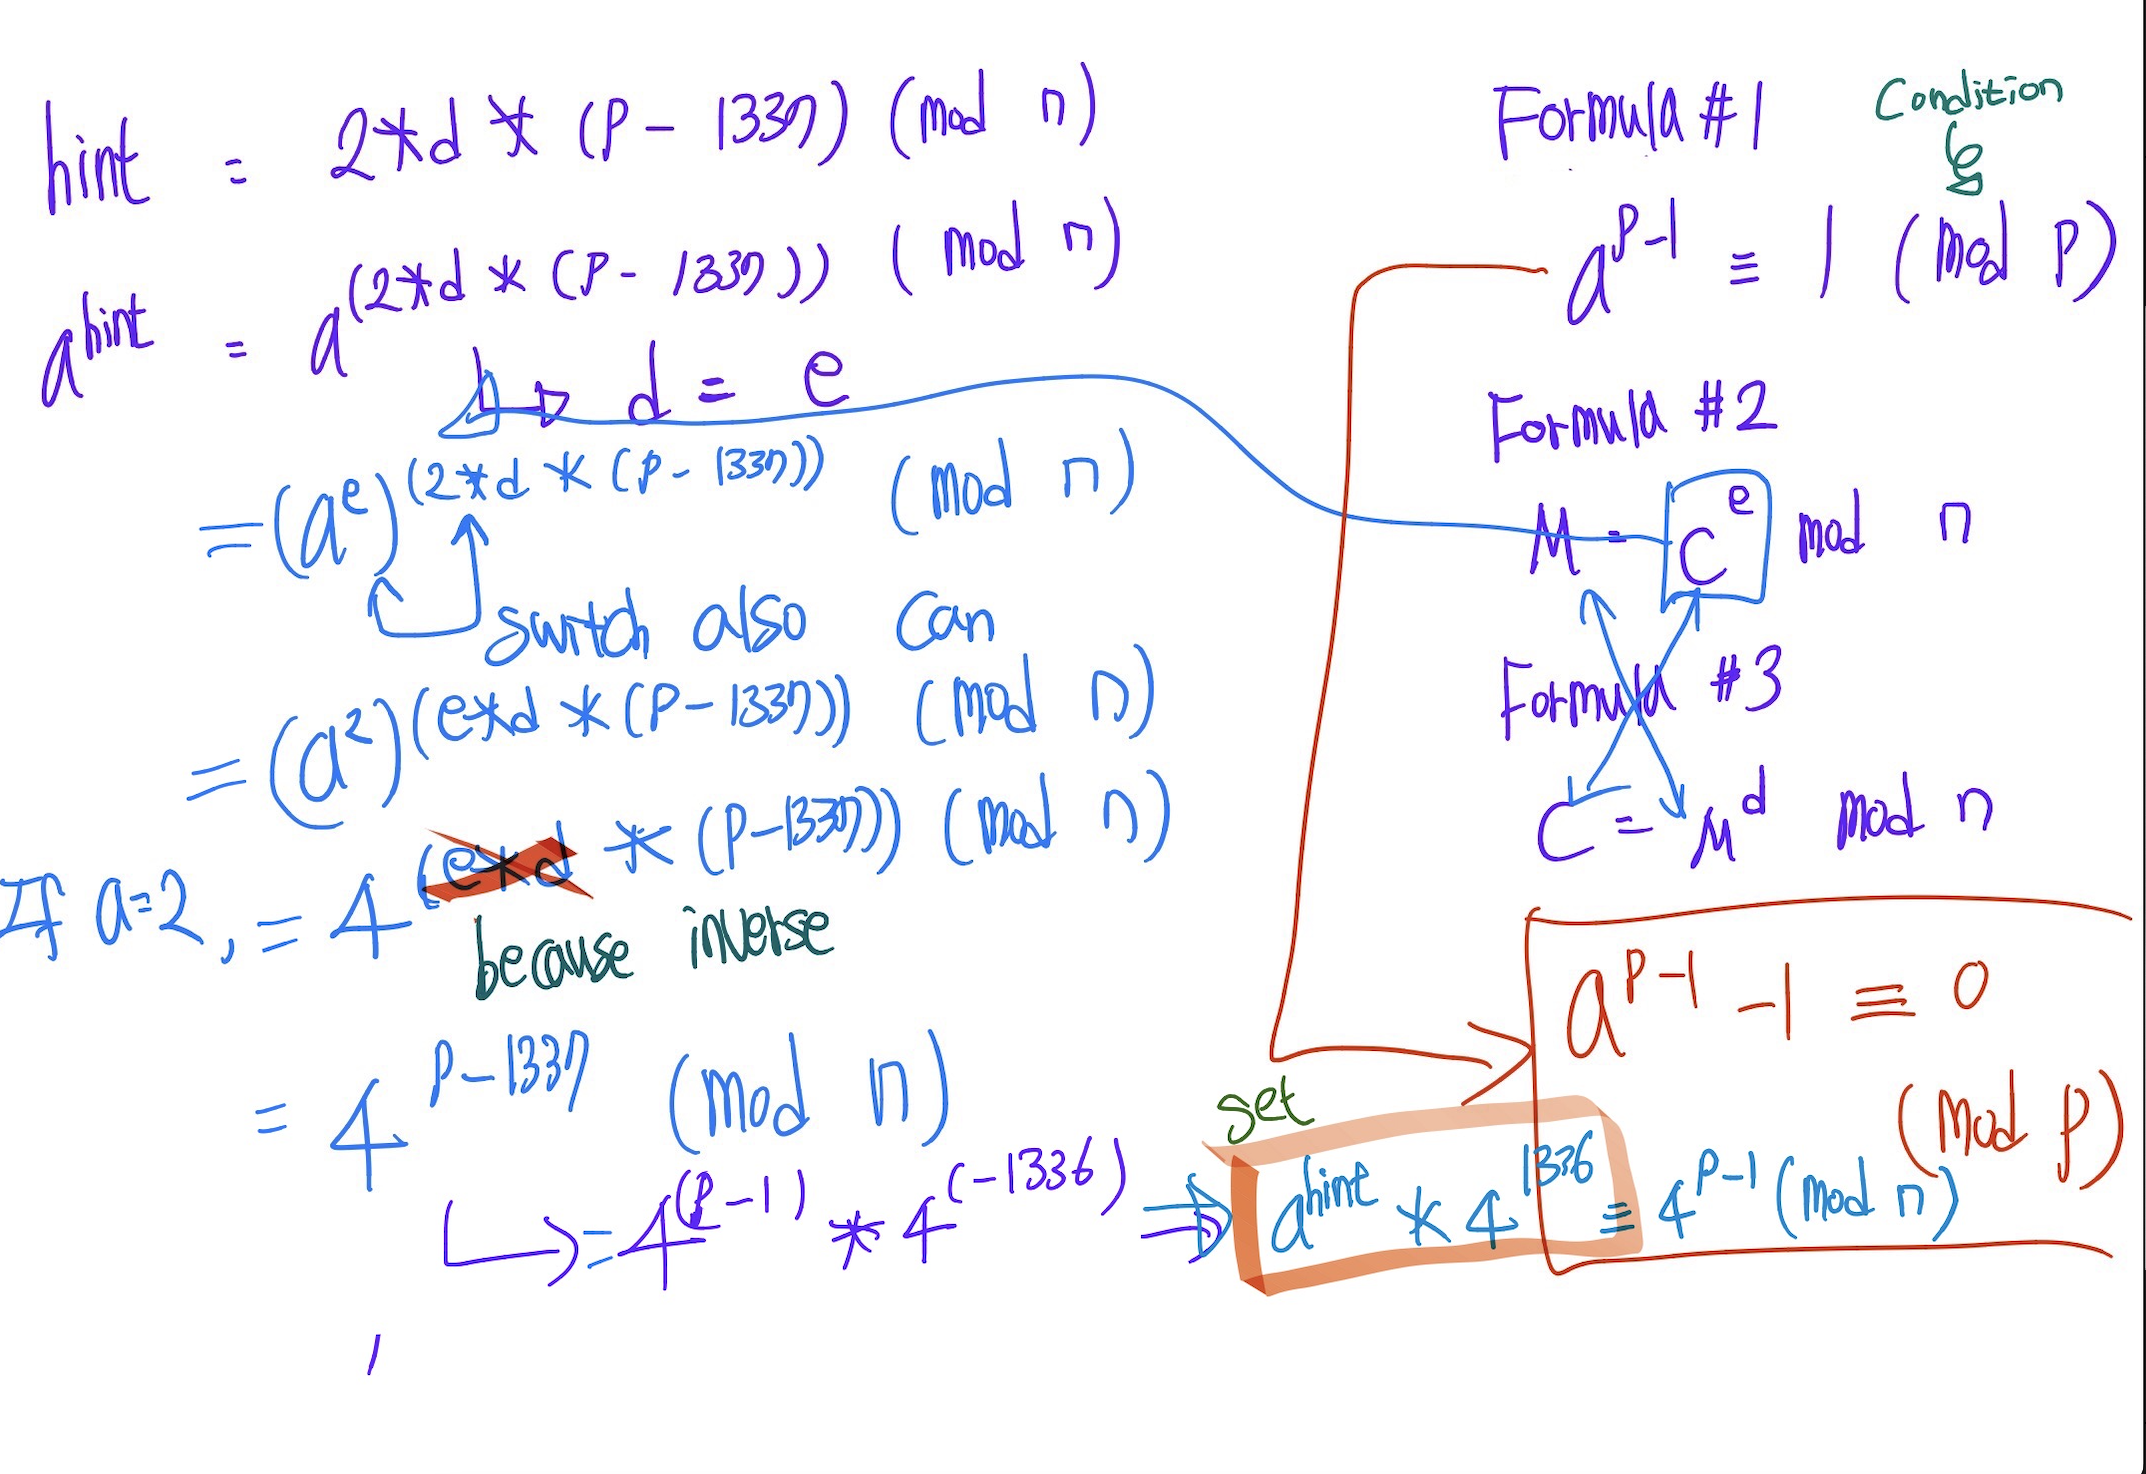 hint = 2*d * (P - 1337) (mod n)
a^hint = a^(2*d * (P - 1337)) (mod n)
d = e
= (a^e)^(2*d * (P - 1337)) (mod n)
switch also can
= (a^2)^(e*d * (P - 1337)) (mod n)
If a=2, = 4^(e*d * (P - 1337)) (mod n)
because inverse
= 4^P-1337 (mod n)
= 4^(P-1) * 4^(-1336)
Formula #1
Condition
a^P-1 ≡ 1 (mod P)
Formula #2
M = C^e mod n
Formula #3
C = M^d mod n
a^P-1 - 1 ≡ 0
(mod P)
set
a^hint * 4^1336 ≡ 4^P-1 (mod n)